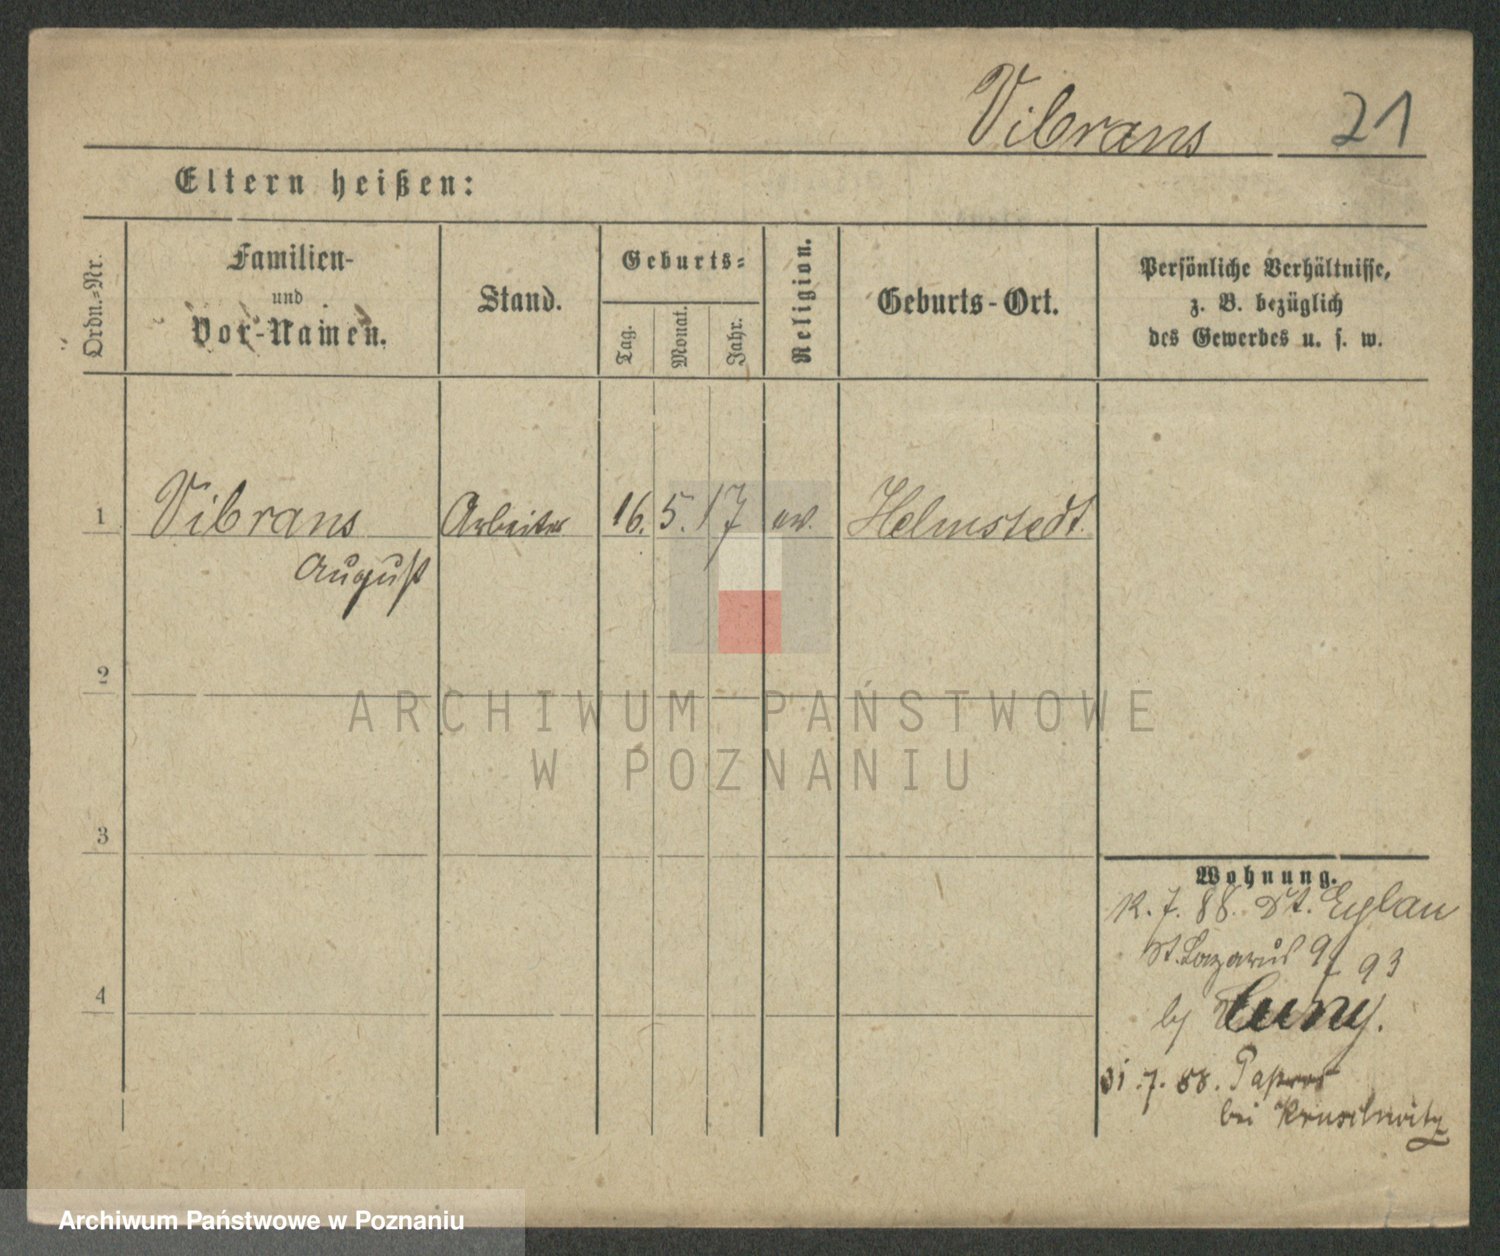 Vibrans 21
Eltern heißen:
Ordn.-Nr.
Familien-
und
Vor-Namen.
Stand.
Geburts-
Tag.
Monat.
Jahr.
Religion.
Geburts-Ort.
Persönliche Verhältnisse,
z. B. bezüglich
des Gewerbes u. s. w.
1 Vibrans Arbeiter 16. 5. 17 ev. Helmstedt
August
2
3
4
Wohnung.
12. 7. 88. Dt. Eylau
St. Lazarus 93
Cuny.
31. 7. 88.
bei Kruschwitz
ARCHIWUM PAŃSTWOWE
W POZNANIU
Archiwum Państwowe w Poznaniu